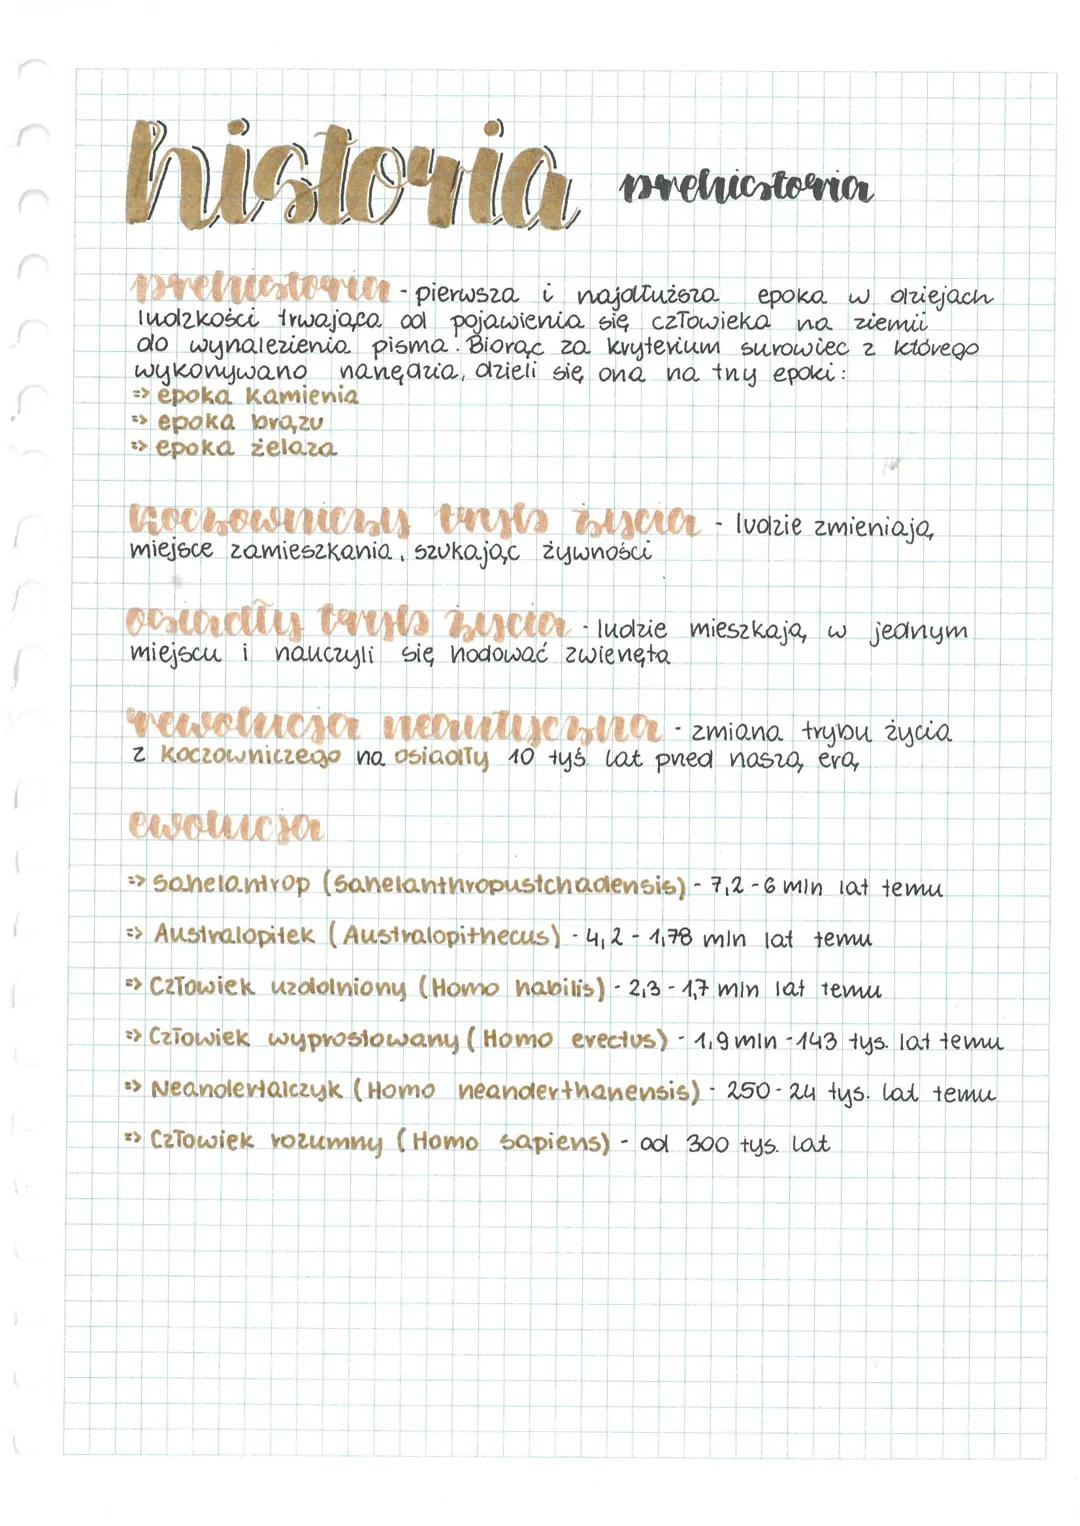 historia prehistoria
prehistoria - pierwsza i najdłuższa epoka w dziejach
ludzkości trwająca od pojawienia się człowieka na ziemii
do wynalezienia pisma. Biorąc za kryterium surowiec z którego
wykonywano narzędzia, dzieli się ona na trzy epoki:
=> epoka kamienia
=> epoka brązu
=> epoka żelaza
koczowniczy tryb życia - ludzie zmieniają
miejsce zamieszkania, szukając żywności
osiadły tryb życia - ludzie mieszkają w jednym
miejscu i nauczyli się hodować zwierzęta
rewolucja neolityczna - zmiana trybu życia
z koczowniczego na osiadły 10 tyś lat przed naszą erą
ewolucja
=> Sahelantrop (Sahelanthropustchadensis) - 7,2 - 6 mln lat temu
=> Australopitek (Australopithecus) - 4,2 - 1,78 mln lat temu
=> Człowiek uzdolniony (Homo habilis) - 2,3 - 1,7 mln lat temu
=> Człowiek wyprostowany (Homo erectus) - 1,9 mln - 143 tys. lat temu
=> Neandertalczyk (Homo neanderthanensis) - 250 - 24 tys. lat temu
=> Człowiek rozumny (Homo sapiens) - od 300 tys. lat